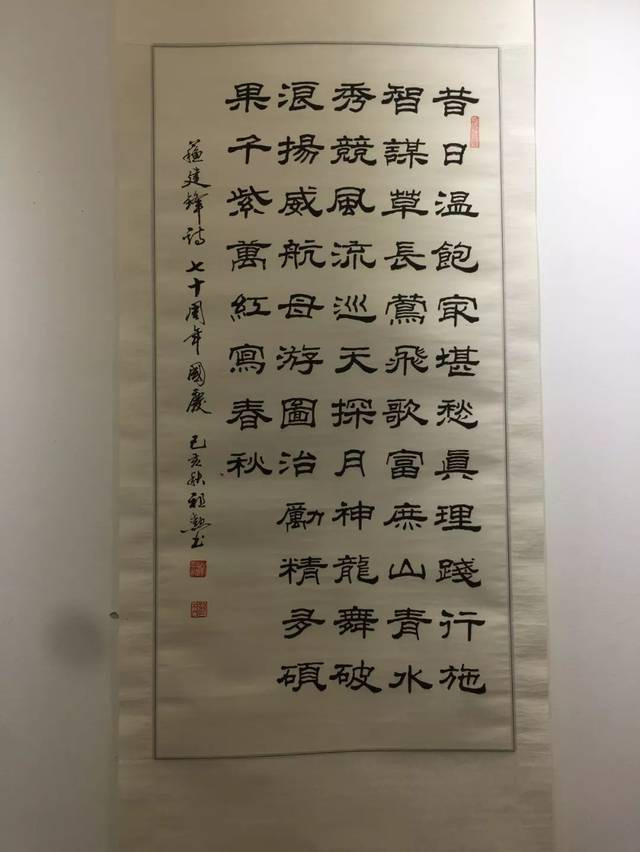 昔日温飽家堪愁真理踐行施
智謀草長鶯飛歌富庶山青水
秀競風流巡天探月神龍舞破
浪揚威航母游圖治勵精多碩
果千紫萬紅寫春秋
蘇建鋒詩七十周年國慶己亥秋祖勲书